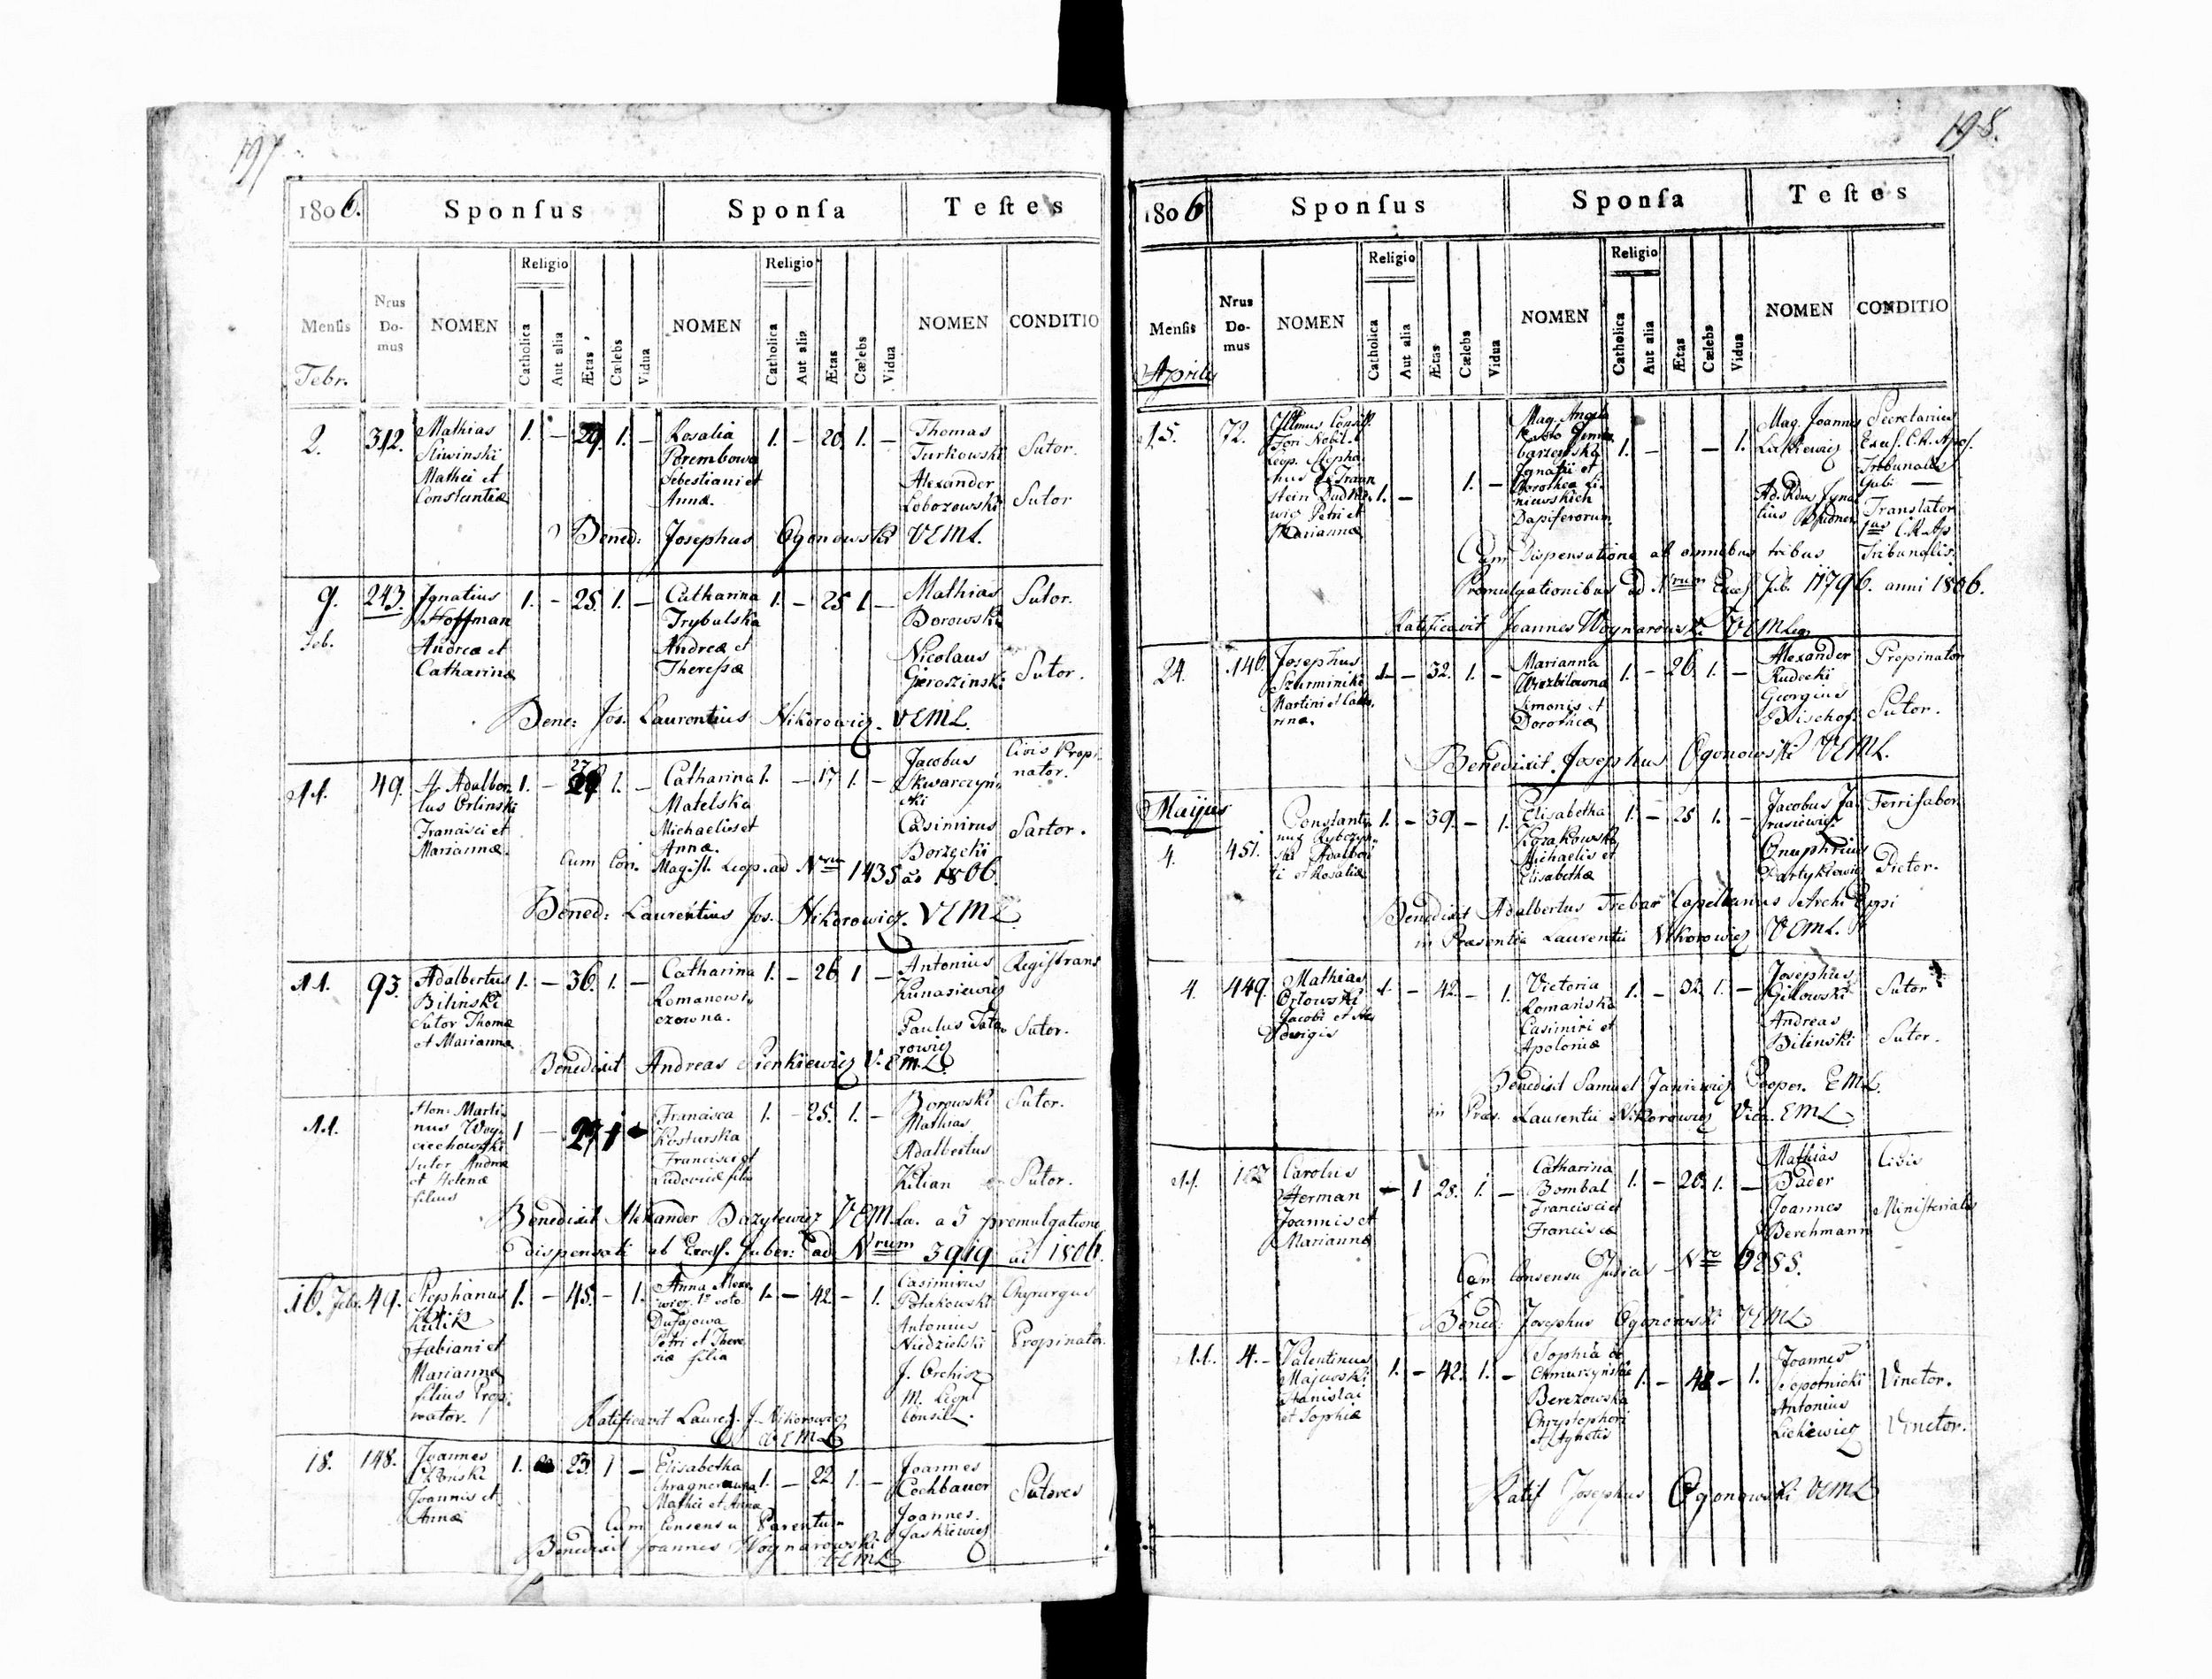 197
1806. Sponſus Sponſa Teſtes
Religio Religio
Menſis Nrus Domus NOMEN Catholica Aut alia Ætas Cælebs Vidua NOMEN Catholica Aut alia Ætas Cælebs Vidua NOMEN CONDITIO
Febr.
2. 312. Mathias 1. – 29. 1. – Rosalia 1. – 20. 1. – Thomas
Sliwinski Porembowa Turkowski Sutor.
Mathei et Sebestiani et Alexander
Constantiæ Annæ. Lobozowski Sutor
Bened: Josephus Ogonowski VEML.
9. 243. Ignatius 1. – 25. 1. – Catharina 1. – 25 1. – Mathias Sutor.
Feb. Hoffman Trybulska Borowski
Andreæ et Andreæ et Nicolaus
Catharinæ Theresæ Geroszinski Sutor.
Bene: Jos. Laurentius Nikorowicz. VEML.
11. 49. Adalber- 1. – 27 1. – Catharina 1. – 17 1. – Jacobus Civis Propi-
tus Orlinski Matelska Skwarczyn- nator.
Francisci et Michaelis et ski
Mariannæ. Annæ. Casimirus Sartor.
Borzęcki
Cum Con. Magist. Leop. ad Nrum 1435 ao 1806.
Bened: Laurentius Jos. Nikorowicz. VEML
11. 93. Adalbertus 1. – 36. 1. – Catharina 1. – 26 1 – Antonius Registrans
Bilinski Romanowi- Kunasiewicz
Sutor Thomæ czowna. Paulus Tata- Sutor.
et Mariannæ rowicz
Benedixit Andreas Pienkiewicz V. EML.
11. Hon. Marti- 1 – 27 1 – Francisca 1. – 25. 1. – Borowski Sutor.
nus Woy- Kosturska Mathias
ciechowski Francisci et Adalbertus
Sutor Andreæ Ludovicæ filia Kilian Sutor.
et Helenæ
filius
Benedixit Alexander Bazylewicz VEM La. a 3 premulgatione
dispensati ab Excels. Guber: ad Nrum 3919 ai 1806.
16. Febr. 49. Stephanus 1. – 45. – 1. Anna 1. – 42. – 1. Casimirus Chyrurgus
Kulik 1o voto Polakowski
Fabiani et Dufajowa Antonius
Mariannæ Petri et There- Niedzielski Propinator.
filius Propi- siæ filia J. Orchisz
nator. M. Leopl
Consil.
Ratificavit Laure. J. Nikorowicz
VEML
18. 148. Joannes 1. 23. 1 – Elisabetha 1. – 22. 1. – Joannes
Joannis et Mathei et Annæ Cochbauer Sutores
Annæ Joannes
Jaskiewicz
Cum Consensu Parentum
Benedixit Joannes Woynarowski
VEML
198.
1806 Sponſus Sponſa Teſtes
Religio Religio
Menſis Nrus Domus NOMEN Catholica Aut alia Ætas Cælebs Vidua NOMEN Catholica Aut alia Ætas Cælebs Vidua NOMEN CONDITIO
Aprilis
15. 72. Illmus Consil. 1. – 1. – Mag. Angela 1. – – 1. Mag. Joannes Secretarius
Fori Nobil. Excels. C.R. Apel.
Leop. Stepha- Ignatii et Tribunalis
nus Dorothea Gub. –
Translator
wicz Petri et Dapiferorum jus C.R. Ap.
Marianna Tribunalis.
Cum Dispensatione ab omnibus tribus
Promulgationibus ad Nrum Excels. Gub. 11796. anni 1806.
Ratificavit Joannes Woynarowski VEMLeop.
24. 146. Josephus 1. – 32. 1. – Marianna 1. – 26. 1. – Alexander Propinator
Szurminski Wiezbilowna Rudecki
Martini et Catha- Simonis et Georgius
rinæ. Dorotheæ Bischof. Sutor.
Benedixit. Josephus Ogonowski VEML.
Maijus
4. 451. Constanti- 1. – 39. – 1. Elisabetha 1. – 25 1. – Jacobus Ja- Ferrifaber
nus Rybczyn- Kozakowska rusiewicz
ski Adalber- Michaelis et Onuphrius
ti et Rosaliæ Elisabethæ Partykiewicz Pictor.
Benedixit Adalbertus Trebar Capellanus Archi Eppi
in Præsentia Laurentii Nikorowicz VEML.
4. 449. Mathias 1. – 42. – 1. Victoria 1. – 32. 1. – Josephus Sutor
Orlowski Romańska Gillowski
Jacobi et He- Casimiri et Andreas
dwigis Apoloniæ Bilinski Sutor.
Benedixit Samuel Janiewicz Cooper. EML.
in Præs. Laurentii Nikorowicz Vica. EML
11. 127 Carolus – 1 28. 1. – Catharina 1. – 20. 1. – Mathias Civis
Herman Bombal Bader
Joannis et Francisci et Joannes Ministerialis
Mariannæ Franciscæ Berchmann
Cum Consensu Judicii Nro 6255.
Bened: Josephus Ogonowski VEML
11. 4. – Valentinus 1. – 42. 1. – Sophia de 1. – 42 – 1. Joannes
Majewski Chmurzynskie Sopotnicki Vinctor.
Stanislai Berezowska Antonius
et Sophiæ Chrystophori Lickiewicz Vinctor.
et Agnetis
Ratif Josephus Ogonowski VEML